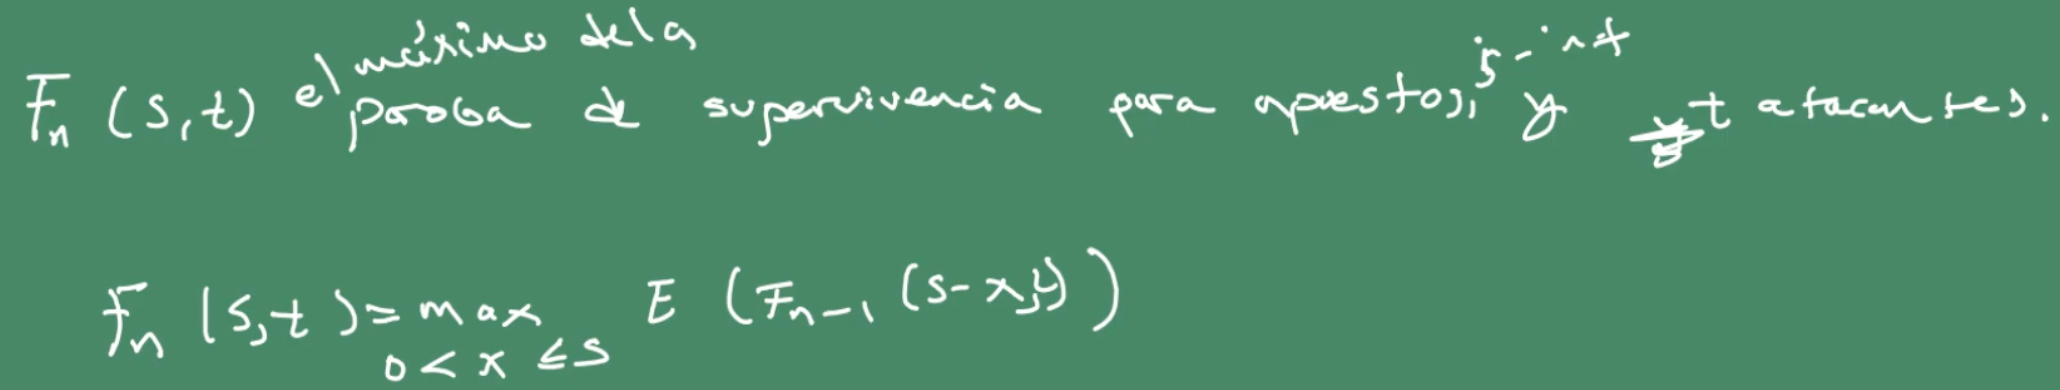 F_n (s,t) el máximo de la proba de supervivencia para n puestos, s-int y t atacantes.
F_n (s,t) = max E (F_{n-1} (s-x, y))
0 < x ≤ s